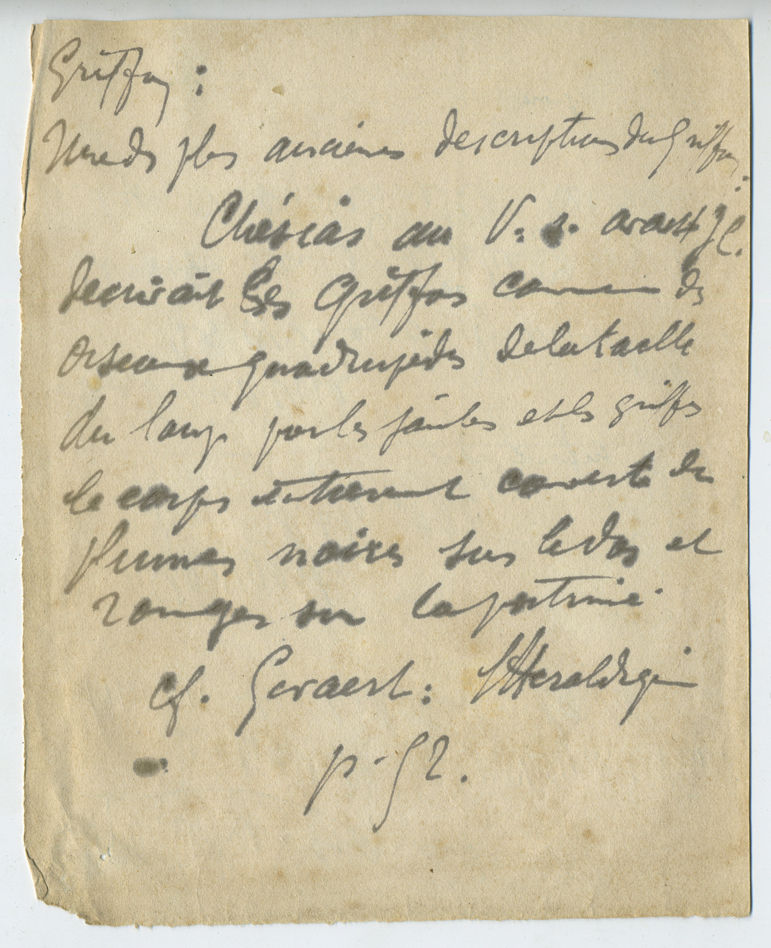 Griffon :
Une des plus anciennes descriptions du Griffon :
Ctésias au V. s. avant JC.
decrivait les Griffons comme des
oiseaux quadrupèdes de la taille
du loup par les jambes et les griffes
le corps entièrement couverts de
plumes noires sur le dos et
rouges sur la poitrine.
cf. Gevaert : l'Heraldique
p. 52.